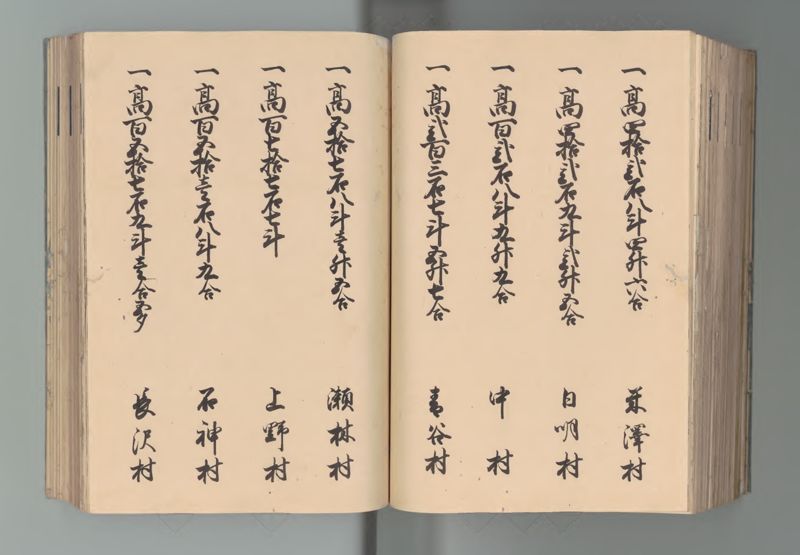 一高四拾弐石八斗四升六合 米澤村
一高四拾弐石九斗弐升五合 日明村
一高百弐石八斗九升九合 中村
一高弐百三石七斗五升七合 青谷村
一高五拾七石八斗壱升五合 瀬林村
一高百七拾七石七斗 上野村
一高百五拾壱石八斗九合 石神村
一高百五拾七石九斗壱合五夕 長沢村